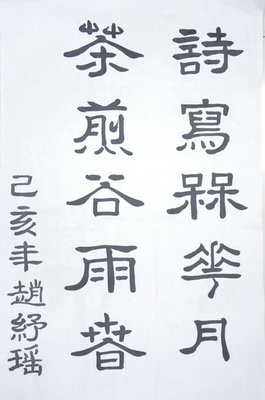 詩寫槑華月
茶煎谷雨旾
己亥年趙紓瑶